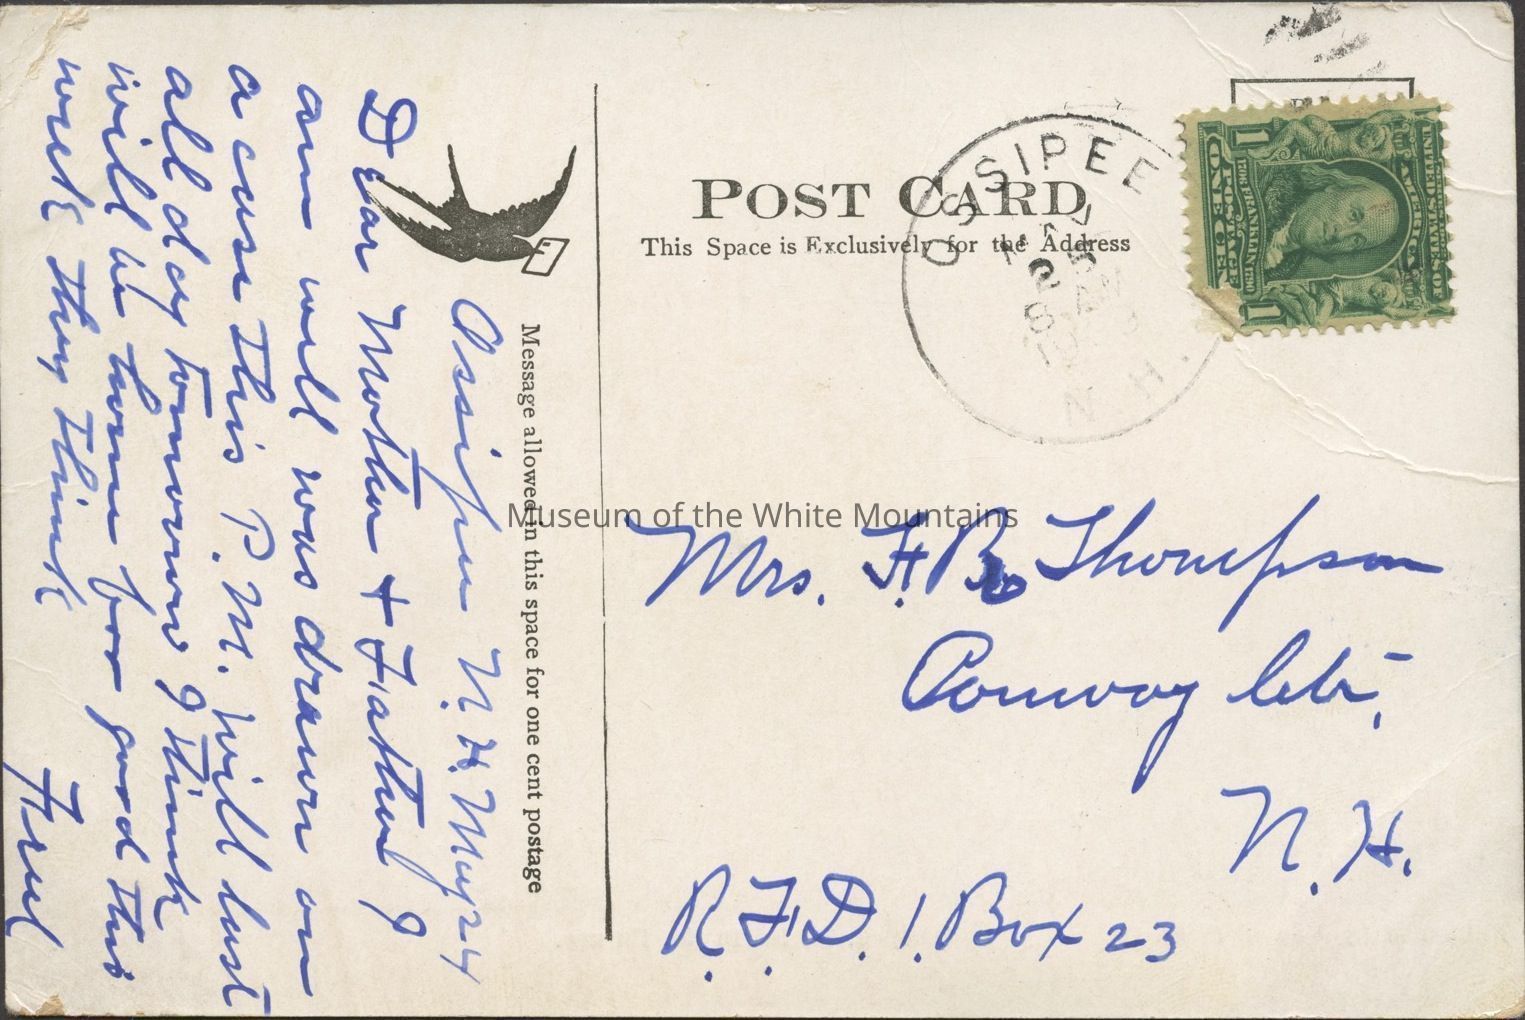 Ossipee N.H. May 24
Dear Mother + Father I
am well was drawn on
a case this P.M. will last
all day tomorrow I think
will be home for good this
week they think
Fred
Message allowed in this space for one cent postage
POST CARD
This Space is Exclusively for the Address
OSSIPEE
25
8 AM
N.H.
1 1
ONE CENT
POSTAGE
UNITED STATES OF
AMERICA
Mrs. F. B. Thompson
Conway Ctr,
N. H.
R.F.D. 1. Box 23
Museum of the White Mountains